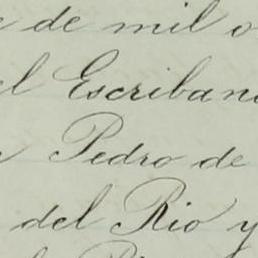 de mil o
el Escribano
Pedro de
del Rio y